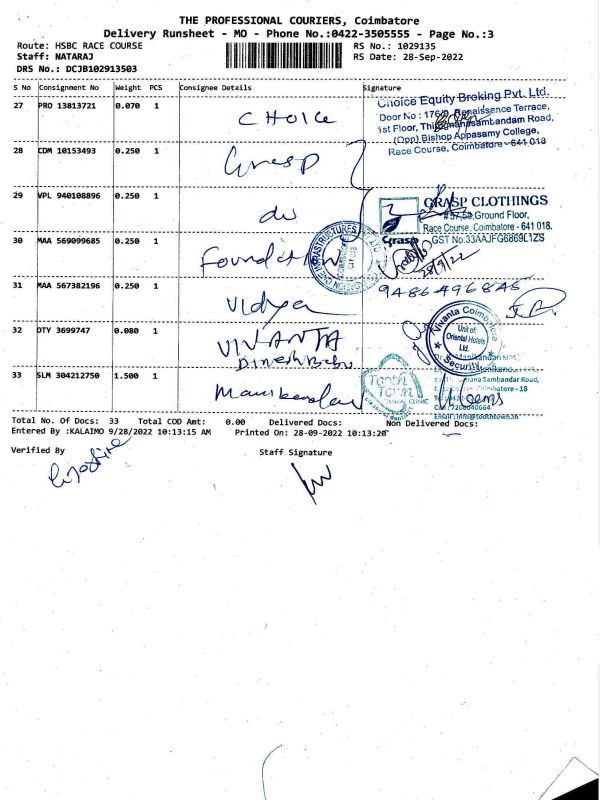 THE PROFESSIONAL COURIERS, Coimbatore
Delivery Runsheet - MO - Phone No.:0422-3505555 - Page No.:3
Route: HSBC RACE COURSE RS No.: 1029135
Staff: NATARAJ RS Date: 28-Sep-2022
DRS No.: DCJB102913503
S No Consignment No Weight PCS Consignee Details Signature
27 PRO 13813721 0.070 1 CHOICE
Choice Equity Broking Pvt. Ltd.
Door No : 176/9, Renaissance Terrace,
1st Floor, Thirugnanasambandam Road,
(Opp) Bishop Appasamy College,
Race Course, Coimbatore - 641 018
28 CDM 10153493 0.250 1 Grasp
29 VPL 940108896 0.250 1 do
GRASP CLOTHINGS
#57,58, Ground Floor,
Race Course, Coimbatore - 641 018.
GST No.33AAJFG6869L1ZS
Grasp
30 MAA 569099685 0.250 1 Foundation
28/9/22
31 MAA 567382196 0.250 1 Vidya
9486496846
32 DTY 3699747 0.080 1 VIVANTA
Dinesh Babu
Vivanta Coimbatore
Unit of:
Oriental Hotels
Ltd.
Security
33 SLM 304212750 1.500 1 Manikandan
Tooth
Town
DENTAL CLINIC
Sambandar Road,
Coimbatore - 18
Email: info@toothtown.in
Total No. Of Docs: 33 Total COD Amt: 0.00 Delivered Docs: Non Delivered Docs:
Entered By :KALAIMO 9/28/2022 10:13:15 AM Printed On: 28-09-2022 10:13:20
Verified By Staff Signature